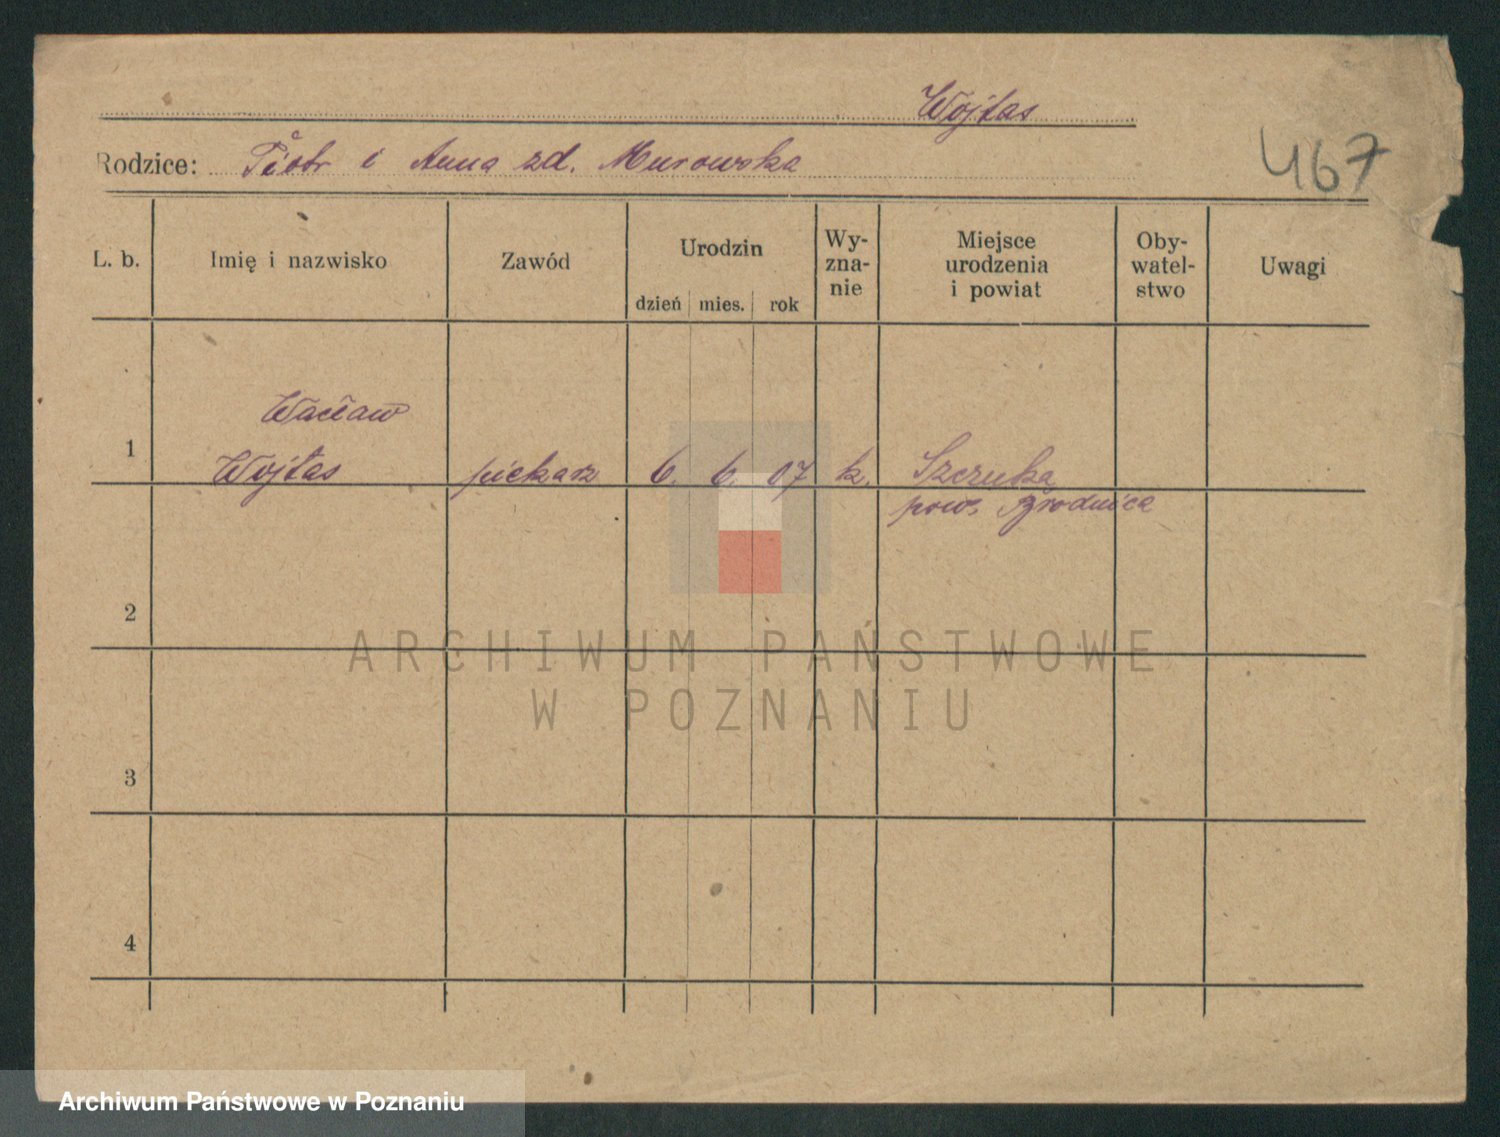 Wojtas
467
Rodzice: Piotr i Anna zd. Murowska
L. b. Imię i nazwisko Zawód Urodzin dzień mies. rok Wy-zna-nie Miejsce urodzenia i powiat Oby-watel-stwo Uwagi
Wacław
1 Wojtas piekarz 6. 6. 07 k. Szczuka
pow. Brodnica
2
3
4
ARCHIWUM PAŃSTWOWE
W POZNANIU
Archiwum Państwowe w Poznaniu